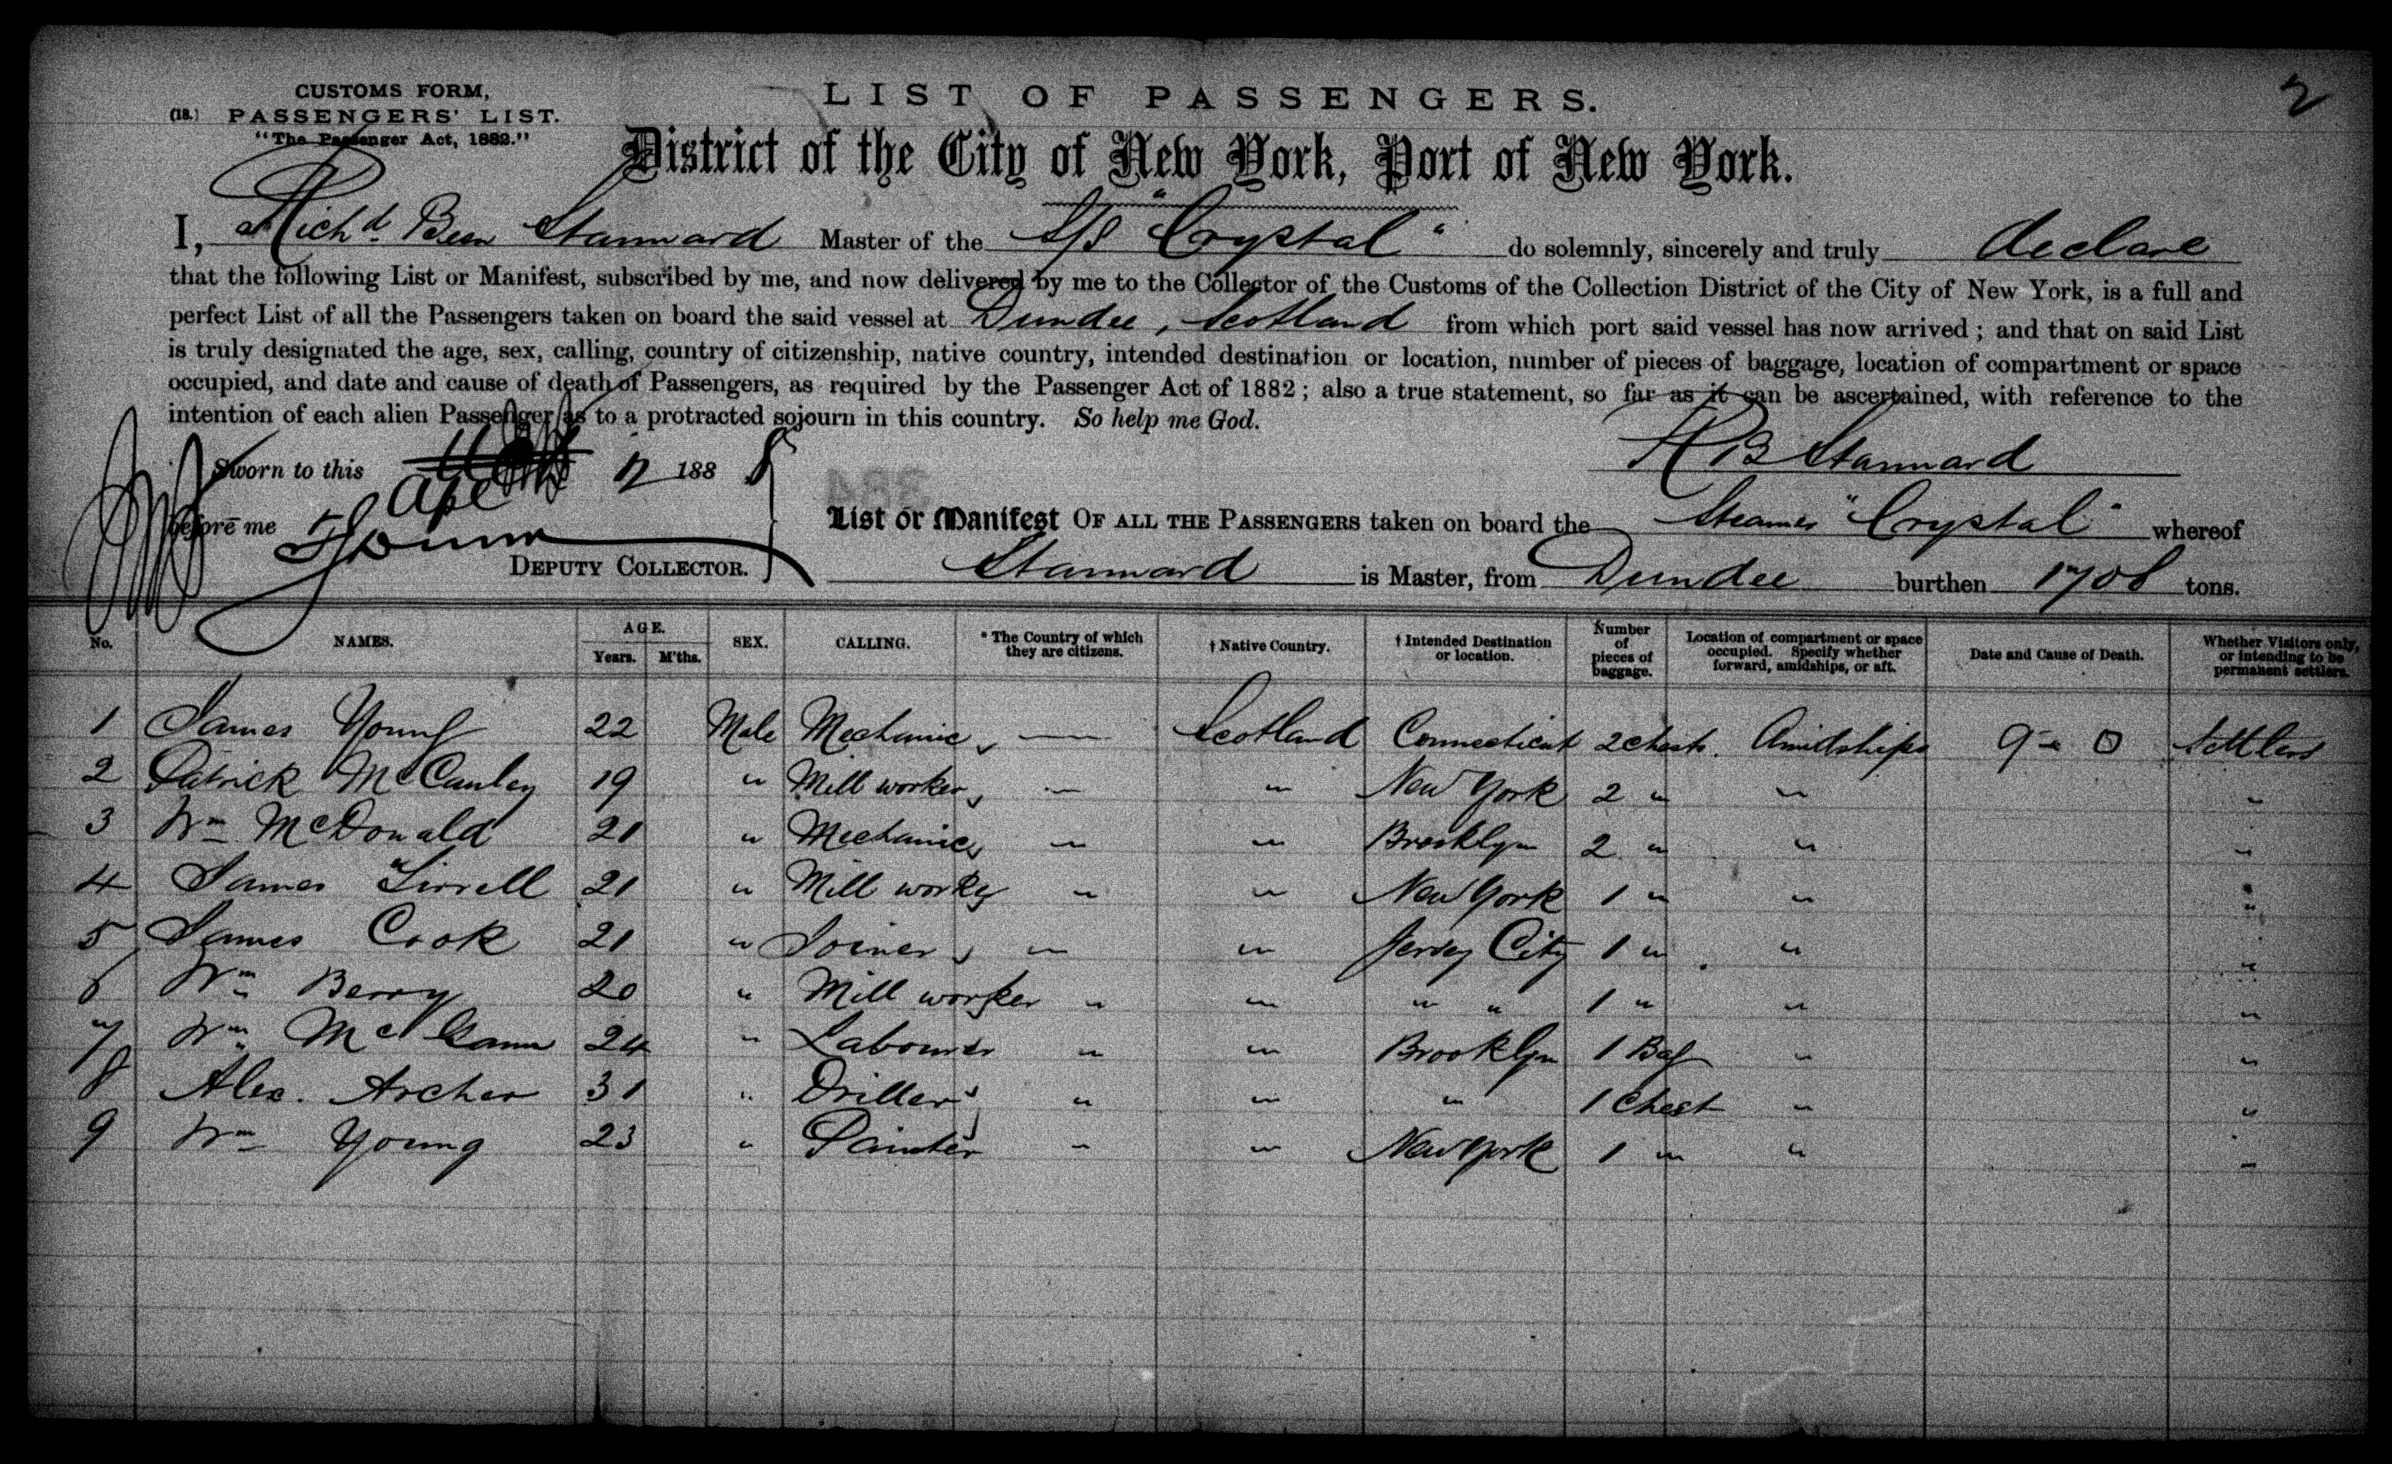 2
CUSTOMS FORM,
(18.) PASSENGERS' LIST.
"The Passenger Act, 1882."
LIST OF PASSENGERS.
District of the City of New York, Port of New York.
I, Richd. Stannard Master of the S/S "Crystal" do solemnly, sincerely and truly declare
that the following List or Manifest, subscribed by me, and now delivered by me to the Collector of the Customs of the Collection District of the City of New York, is a full and
perfect List of all the Passengers taken on board the said vessel at Dundee, Scotland from which port said vessel has now arrived; and that on said List
is truly designated the age, sex, calling, country of citizenship, native country, intended destination or location, number of pieces of baggage, location of compartment or space
occupied, and date and cause of death of Passengers, as required by the Passenger Act of 1882; also a true statement, so far as it can be ascertained, with reference to the
intention of each alien Passenger as to a protracted sojourn in this country. So help me God.
R B Stannard
Sworn to this 12 1888
before me
DEPUTY COLLECTOR.
List or Manifest OF ALL THE PASSENGERS taken on board the Steamer "Crystal" whereof
Stannard is Master, from Dundee burthen 1708 tons.
No. NAMES. AGE. Years. M'ths. SEX. CALLING. * The Country of which they are citizens. † Native Country. † Intended Destination or location. Number of pieces of baggage. Location of compartment or space occupied. Specify whether forward, amidships, or aft. Date and Cause of Death. Whether Visitors only, or intending to be permanent settlers.
1 James Young 22 Male Mechanic — Scotland Connecticut 2 chests. Amidships 9 – 0 Settlers
2 Patrick McCauley 19 " Mill worker " " New York 2 " " "
3 Wm McDonald 21 " Mechanic " " Brooklyn 2 " " "
4 James 21 " Mill worker " " New York 1 " " "
5 James Cook 21 " Joiner " " Jersey City 1 " " "
6 Wm Berry 20 " Mill worker " " " " 1 " " "
7 Wm Mc 24 " Labourer " " Brooklyn 1 Bag " "
8 Alex. Archer 31 " Driller " " " 1 Chest " "
9 Wm Young 23 " Painter " " New York 1 " " "